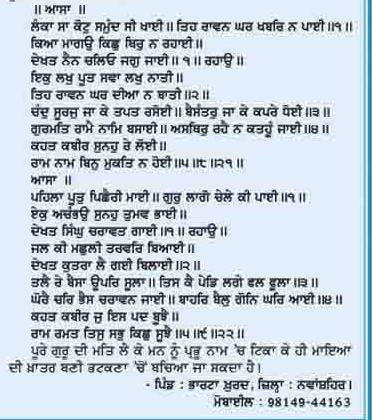 ॥ ਆਸਾ ॥
ਲੰਕਾ ਸਾ ਕੋਟੁ ਸਮੁੰਦ ਸੀ ਖਾਈ॥ ਤਿਹ ਰਾਵਨ ਘਰ ਖਬਰਿ ਨ ਪਾਈ॥੧॥
ਕਿਆ ਮਾਗਉ ਕਿਛੁ ਥਿਰੁ ਨ ਰਹਾਈ॥
ਦੇਖਤ ਨੈਨ ਚਲਿਓ ਜਗੁ ਜਾਈ॥ ੧॥ ਰਹਾਉ॥
ਇਕੁ ਲਖੁ ਪੂਤ ਸਵਾ ਲਖੁ ਨਾਤੀ॥
ਤਿਹ ਰਾਵਨ ਘਰ ਦੀਆ ਨ ਬਾਤੀ॥੨॥
ਚੰਦੁ ਸੂਰਜੁ ਜਾ ਕੇ ਤਪਤ ਰਸੋਈ॥ ਬੈਸੰਤਰੁ ਜਾ ਕੇ ਕਪਰੇ ਧੋਈ॥੩॥
ਗੁਰਮਤਿ ਰਾਮੈ ਨਾਮਿ ਬਸਾਈ॥ ਅਸਥਿਰੁ ਰਹੈ ਨ ਕਤਹੂੰ ਜਾਈ॥੪॥
ਕਹਤ ਕਬੀਰ ਸੁਨਹੁ ਰੇ ਲੋਈ॥
ਰਾਮ ਨਾਮ ਬਿਨੁ ਮੁਕਤਿ ਨ ਹੋਈ॥੫॥੮॥੨੧॥
ਆਸਾ ॥
ਪਹਿਲਾ ਪੂਤੁ ਪਿਛੈਰੀ ਮਾਈ॥ ਗੁਰੁ ਲਾਗੋ ਚੇਲੇ ਕੀ ਪਾਈ॥੧॥
ਏਕੁ ਅਚੰਭਉ ਸੁਨਹੁ ਤੁਮਵ ਭਾਈ॥
ਦੇਖਤ ਸਿੰਘੁ ਚਰਾਵਤ ਗਾਈ॥੧॥ ਰਹਾਉ॥
ਜਲ ਕੀ ਮਛੁਲੀ ਤਰਵਰਿ ਬਿਆਈ॥
ਦੇਖਤ ਕੁਤਰਾ ਲੈ ਗਈ ਬਿਲਾਈ॥੨॥
ਤਲੈ ਰੇ ਬੈਸਾ ਉਪਰਿ ਸੂਲਾ॥ ਤਿਸ ਕੈ ਪੇਡਿ ਲਗੇ ਫਲ ਫੂਲਾ॥੩॥
ਘੋਰੈ ਚਰਿ ਭੈਸ ਚਰਾਵਨ ਜਾਈ॥ ਬਾਹਰਿ ਬੈਲੁ ਗੋਨਿ ਘਰਿ ਆਈ॥੪॥
ਕਹਤ ਕਬੀਰ ਜੁ ਇਸ ਪਦ ਬੂਝੈ॥
ਰਾਮ ਰਮਤ ਤਿਸੁ ਸਭੁ ਕਿਛੁ ਸੂਝੈ॥੫॥੯॥੨੨॥
ਪੂਰੇ ਗੁਰੂ ਦੀ ਮਤਿ ਲੈ ਕੇ ਮਨ ਨੂੰ ਪ੍ਰਭੂ ਨਾਮ 'ਚ ਟਿਕਾ ਕੇ ਹੀ ਮਾਇਆ
ਦੀ ਖ਼ਾਤਰ ਬਣੀ ਭਟਕਣਾ 'ਚੋਂ ਬਚਿਆ ਜਾ ਸਕਦਾ ਹੈ।
- ਪਿੰਡ : ਭਾਰਟਾ ਖ਼ੁਰਦ, ਜ਼ਿਲ੍ਹਾ : ਨਵਾਂਸ਼ਹਿਰ।
ਮੋਬਾਈਲ : 98149-44163